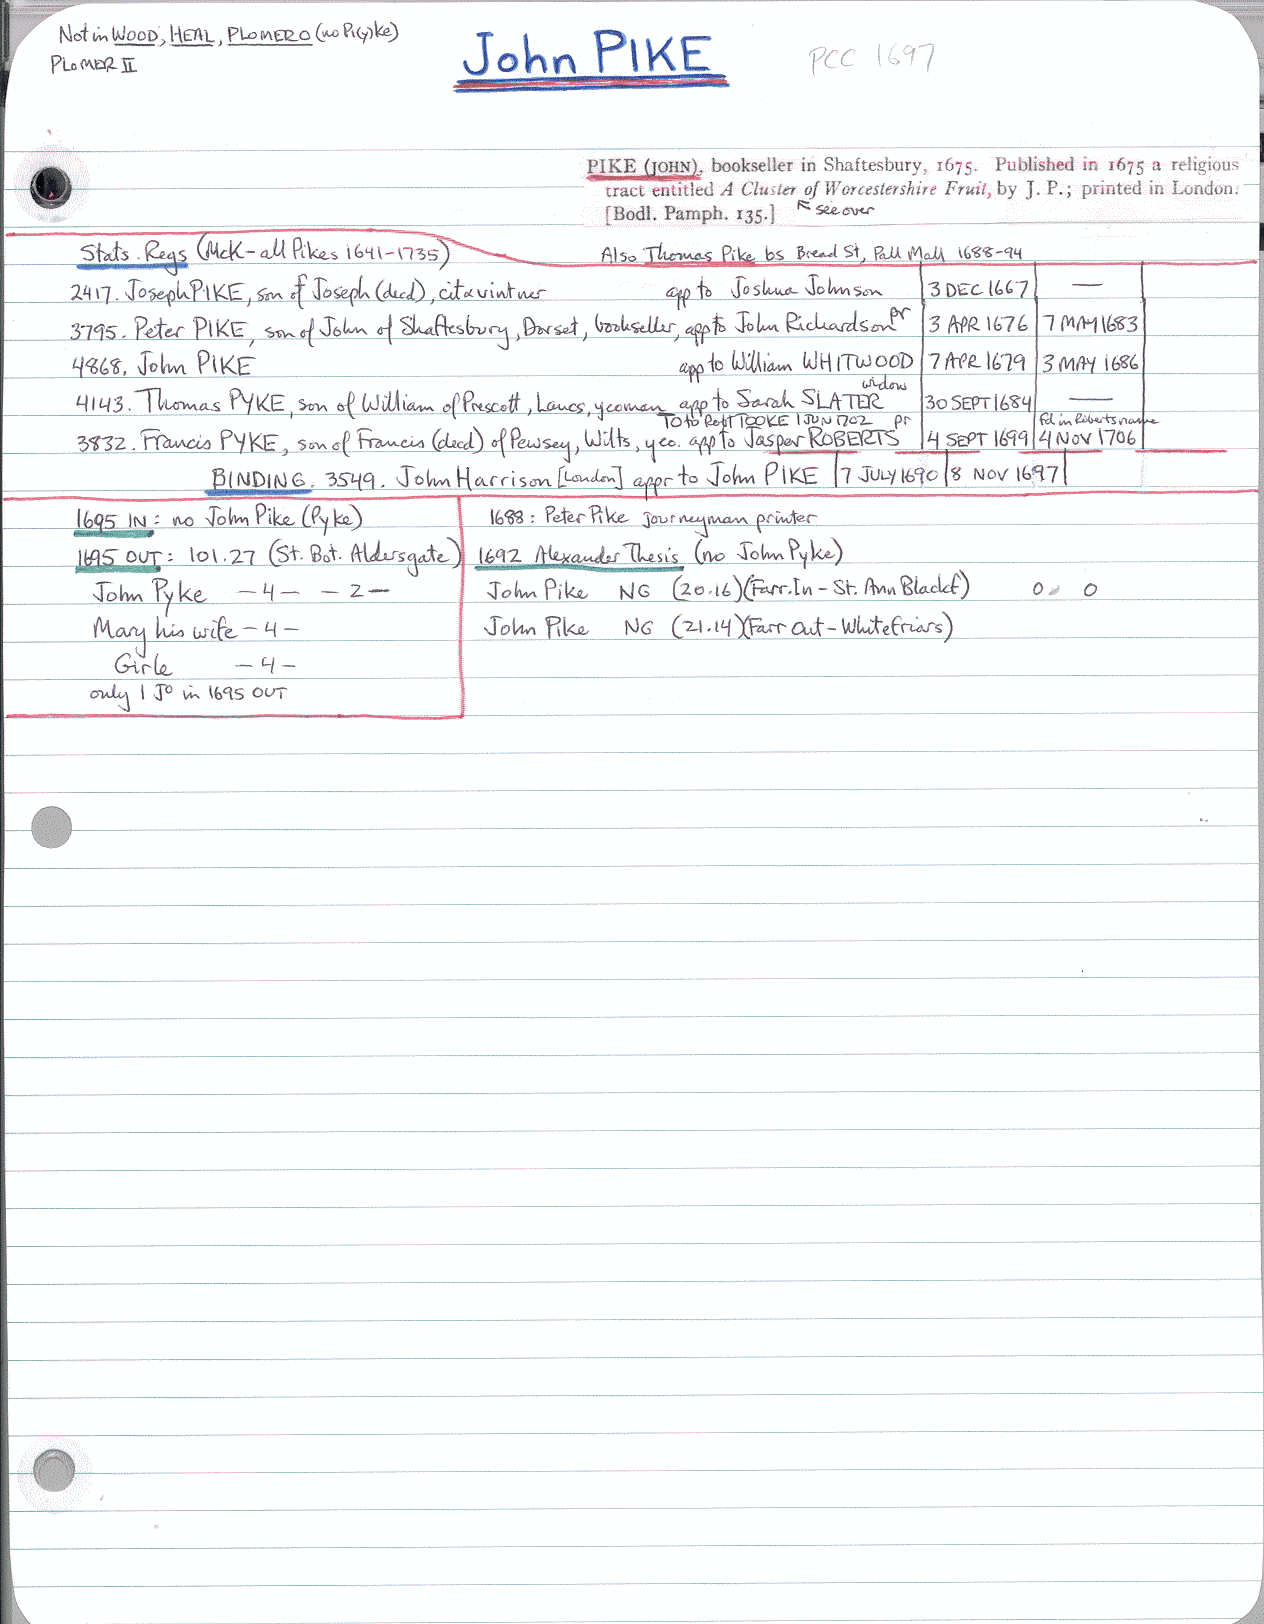 Not in WOOD, HEAL, PLOMER O (no Pi(y)ke)
PLOMER II
John PIKE
PCC 1697
PIKE (JOHN), bookseller in Shaftesbury, 1675. Published in 1675 a religious
tract entitled A Cluster of Worcestershire Fruit, by J. P.; printed in London.
[Bodl. Pamph. 135.]
see over
Stats. Regs (McK - all Pikes 1641-1735)
Also Thomas Pike bs Bread St, Pall Mall 1688-94
2417. Joseph PIKE, son of Joseph (decd), cit & vintner app to Joshua Johnson 3 DEC 1667 —
3795. Peter PIKE, son of John of Shaftesbury, Dorset, bookseller, app to John Richardson pr 3 APR 1676 7 MAY 1683
4868. John PIKE app to William WHITWOOD 7 APR 1679 3 MAY 1686
4143. Thomas PYKE, son of William of Prescott, Lancs, yeoman app to Sarah SLATER widow 30 SEPT 1684 —
TO to Robt TOOKE 1 JUN 1702 pr fd in Roberts name
3832. Francis PYKE, son of Francis (decd) of Pewsey, Wilts, yeo. app to Jasper ROBERTS 4 SEPT 1699 4 NOV 1706
BINDING. 3549. John Harrison [London] appr to John PIKE 7 JULY 1690 8 NOV 1697
1695 IN: no John Pike (Pyke)
1695 OUT: 101.27 (St. Bot. Aldersgate)
John Pyke - 4 - - 2 -
Mary his wife - 4 -
Girle - 4 -
only 1 Jo in 1695 OUT
1688: Peter Pike journeyman printer
1692 Alexander Thesis (no John Pyke)
John Pike NG (20.16) (Farr. In - St. Ann Blackf) 0 0
John Pike NG (21.14) (Farr Out - Whitefriars)